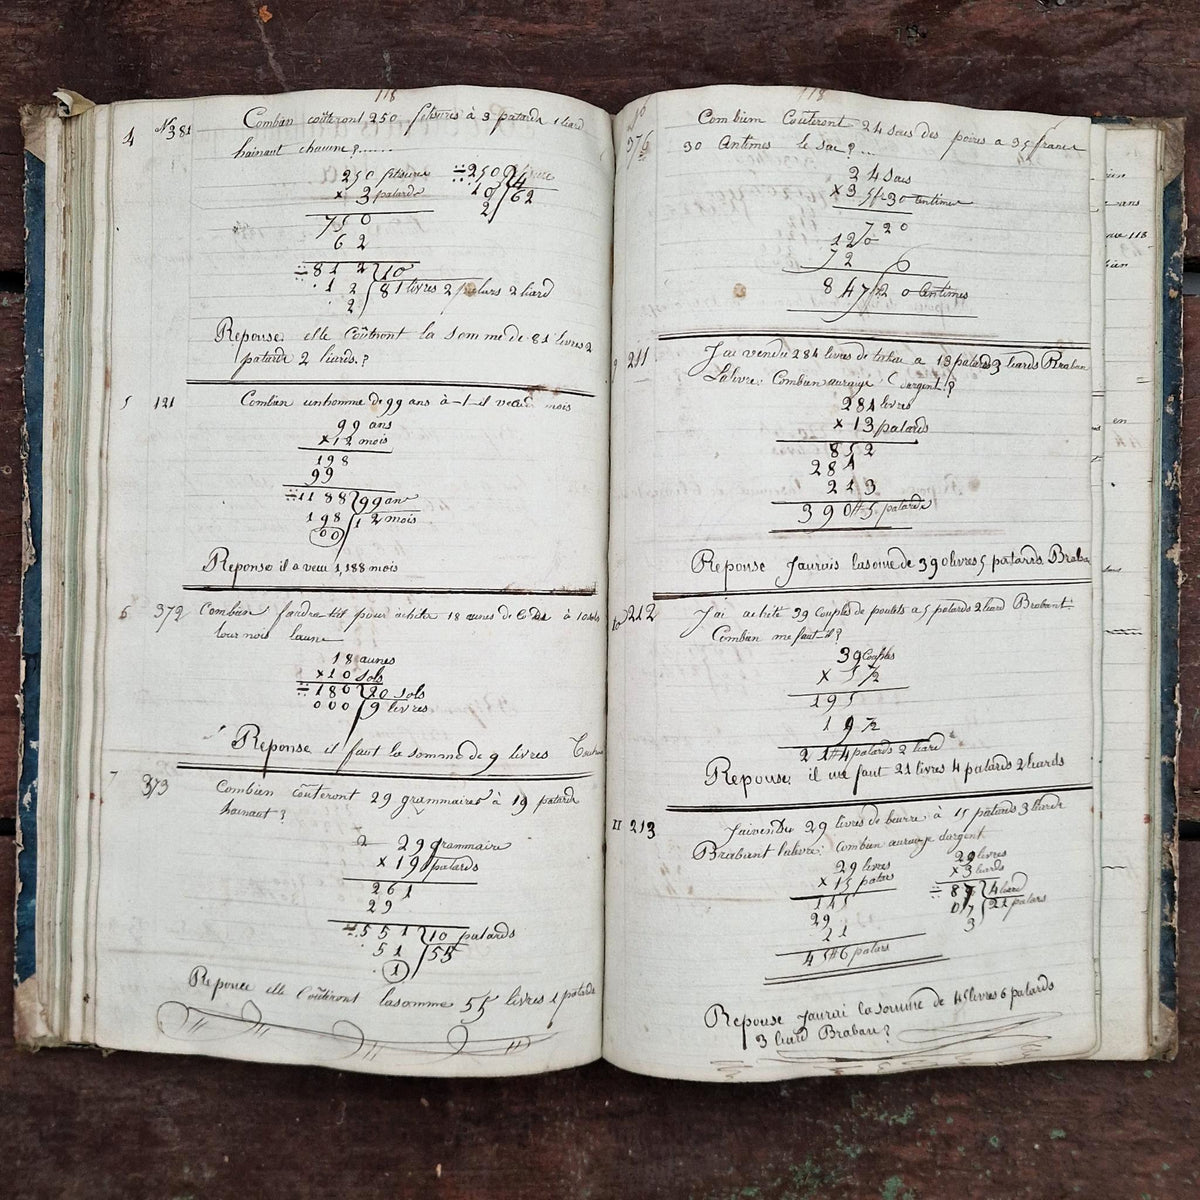 118
4 N 381 Combien coûteront 250 à 3 patards 1 liard
hainaut chaume ?......
250
× 3 patards
750
62
812 10
. 1 2 81 livres 2 patars 2 liard
2
250 4
10 62
2
Reponse elle coûteront la somme de 81 livres 2
patards 2 liards. ?
5 121 Combien un homme de 99 ans à-t-il mois
99 ans
×12 mois
198
99
1188 99 ans
198 12 mois
00
Reponse il a vecu 1,188 mois
6 372 Combien faudra til pour acheter 18 aunes de à 10 sols
tour nois laune
18 aunes
×10 sols
180 20 sols
000 9 livres
Reponse il faut la somme de 9 livres
7 373 Combien coûteront 29 grammaires à 19 patards
hainaut ?
29 grammaire
× 19 patards
261
29
551 10 patards
51 55
1
Reponce elle Coûteront lasomme 55 livres 1 patards
118
376 Combien Coûteront 24 sacs des poires a 35 francs
30 Centimes le sac ?...
24 sacs
×35 f 30 Centimes
720
120
72
847 20 Centimes
9 211 J'ai vendu 284 livres de a 13 patards 3 liards Braban
Lalivre. Combien auraije d'argent ?
284 livres
× 13 patards
852
284
213
390 5 patards
Reponse Jaurais lasome de 390 livres 5 patards. Braba
10 212 J'ai acheté 39 Couples de poulets a 5 patards 2 liard Brabant.
Combien me faut-il ?
39 Couples
× 5 1/2
195
19 1/2
21 4 patards 2 liard
Reponse. il me faut 21 livres 4 patards 2 liards
11 213 Jaivendu 29 livres de beurre à 15 patards 3 liards
Brabant lalivre. Combien auraije dargent
29 livres
× 15 patars
145
29
21
45 6 patars
29 livres
× 3 liards
87 4 liard
07 21 patars
3
Reponse Jaurai la somme de 45 livres 6 patards
3 liard Braban ?